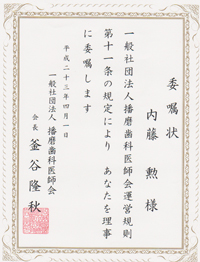 委嘱状
内藤 勲 様
一般社団法人播磨歯科医師会運営規則
第十一条の規定により あなたを理事
に委嘱します
平成二十三年四月一日
一般社団法人 播磨歯科医師会
会長 釜谷隆秋